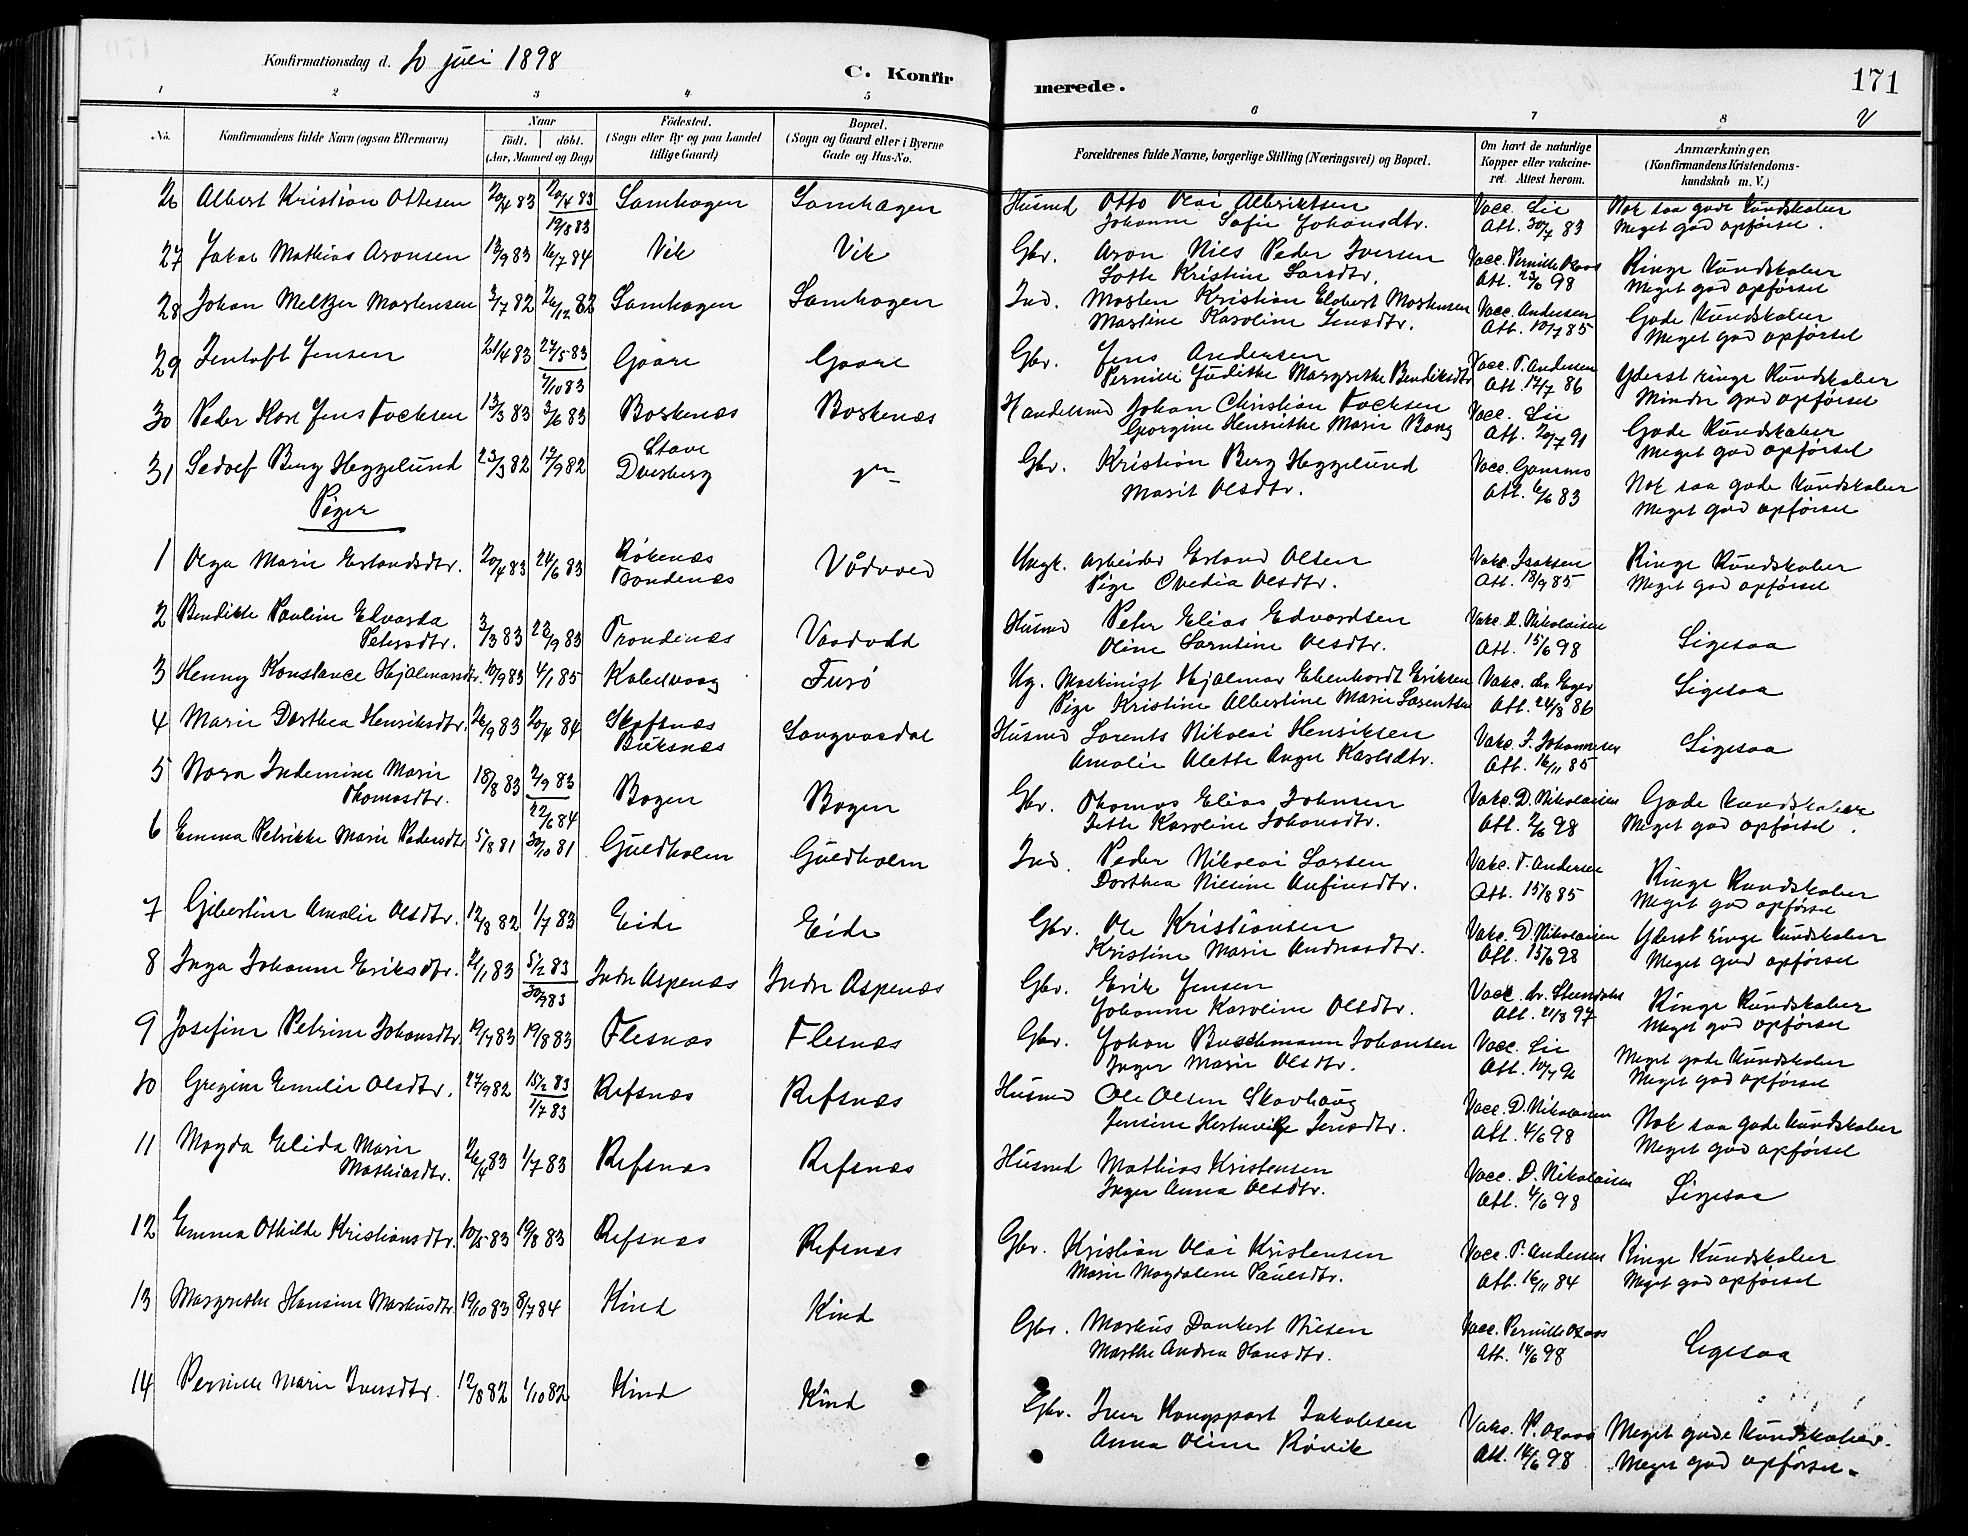 Konfirmationsdag d. 10 juli 1898
C. Konfirmerede.
171
1 2 3 4 5 6 7 8
No. Konfirmandens fulde Navn (ogsaa Efternavn) Naar födt. döbt. (Aar, Maaned og Dag) Födested. (Sogn eller By og paa Landet tillige Gaard) Bopæl. (Sogn og Gaard eller i Byerne Gade og Hus-No. Forældrenes fulde Navne, borgerlige Stilling (Næringsvei) og Bopæl. Om havt de naturlige Kopper eller vakcineret. Attest herom. Anmærkninger. (Konfirmandens Kristendomskundskab m. V.)
26 Albert Kristian Ottesen 20/4 83 20/4 83 Samhagen Samhagen Husmd Otto Olai Albriktsen Vacc. Lie Nok saa gode Kundskaber
19/8 83 Johanne Sofie Johansdtr. Att. 30/7 83 Meget god opförsel.
27 Jakob Mathias Aronsen 13/9 83 16/7 84 Vik Vik Gbr. Aron Niels Peder Iversen Vacc. Pernille Ringe Kundskaber
Lotte Kristine Larsdtr. Att. 98 Meget god opförsel
28 Johan Meltzer Mortensen 3/7 82 26/12 82 Samhagen Samhagen Ind. Morten Kristian Elobert Mortensen Vacc. Andersen Gode Kundskaber
Martine Karoline Jensdtr. Att. 10/7 85 Meget god opförsel
29 Zentoft Jensen 21/4 83 27/5 83 Gaare Gaare Gbr. Jens Andersen Vacc. P. Andersen Yderst ringe Kundskaber
7/10 83 Pernille Judithe Margrethe Bendiksdtr Att. 17/7 86 Mindre god opförsel
30 Peder Kore Jens Fochsen 13/3 83 3/6 83 Borkenæs Borkenæs Handelsmd Johan Christian Fochsen Vacc. Lie Gode Kundskaber
Georgine Henriethe Marie Bang Att. 20/7 91 Meget god opförsel
31 Sedvef Berg Heggelund 23/3 82 17/9 82 Stave Dverberg Gbr. Kristian Berg Heggelund Vacc. Nok saa gode Kundskaber
Marit Olsdtr. Att. 6/6 83 Meget god opförsel
Piger
1 Olga Marie Erlandsdtr. 20/4 83 24/6 83 Rökenæs Trondenæs Vådvoed Ungk. arbeider Erland Olsen Vakc. Isaksen Ringe Kundskaber
Pige Ovedia Olsdtr. Att. 18/9 85 Meget god opförsel
2 Bendikte Pauline Edvarda Petersdtr. 3/3 83 23/9 83 Trondenæs Vaadvodd Husmd Peter Elias Edvardsen Vakc. D. Nikolaisen Ligesaa
Oline Sarntine Olsdtr. Att. 15/6 98
3 Henny Konstance Hjalmarsdtr. 10/9 83 4/1 85 Kabelvaag Furö Ug. Maskinist Hjalmar Ebenhardt Eriksen Vakc. dr. Eger Ligesaa
Pige Kristine Albertine Marie Larentsen Att. 24/8 86
4 Marie Dorthea Henriksdtr. 26/9 83 20/4 84 Skafsnæs Buksnæs Langvasdal Husmd Lorents Nikolai Henriksen Vakc. J. Johannesen Ligesaa
Amalie Alette Anger Karlsdtr. Att. 16/11 85
5 Nora Indemine Marie Thomasdtr. 18/8 83 2/9 83 Bogen Bogen Gbr. Thomas Elias Johnsen Vakc. D. Nikolaisen Gode Kundskaber
22/6 84 Jette Karoline Johansdtr. Att. 2/6 98 Meget god opförsel.
6 Emma Petrikke Marie Pedersdtr 5/8 81 30/10 81 Guldholm Guldholm Ind. Peder Nikolai Larsen Vakc. T. Andersen Ringe Kundskaber
Dorthea Nicline Anfinsdtr. Att. 15/8 85 Meget god opförsel
7 Gjibertine Amalie Olsdtr. 12/8 82 1/7 83 Eide Eide Gbr. Ole Kristiansen Vakc. D. Nikolaisen Yderst ringe Kundskaber
Kristine Marie Andreasdtr. Att. 15/6 98 Meget god opförsel
8 Inga Johanne Eriksdtr. 21/1 83 5/2 83 Indre Aspenæs Indre Aspenæs Gbr. Erik Jensen Vacc. dr. Ringe Kundskaber
30/9 83 Johanne Karoline Olsdtr. Att. 21/8 97 Meget god opförsel
9 Josefine Petrine Johansdtr 19/7 83 19/8 83 Flesnæs Flesnæs Gbr. Johan Buschmann Johansen Vacc. Lie Meget gode Kundskaber
Inger Marie Olsdtr. Att. 10/7 Meget god opförsel
10 Gregine Emelie Olsdtr. 27/9 82 15/2 83 Refsnæs Refsnæs Husmd Ole Olsen Skavhaug Vacc. D. Nikolaisen Nok saa gode Kundskaber
1/7 83 Jensine Hertevikge Jensdtr. Att. 4/6 98 Meget god opförsel
11 Magda Elida Marie Mathiasdtr. 26/4 83 1/7 83 Refsnæs Refsnæs Husmd Mathias Kristensen Vacc. D. Nikolaisen Ligesaa
Inger Anna Olsdtr. Att. 4/6 98
12 Emma Othilde Kristiansdtr. 10/5 83 19/8 83 Refsnæs Refsnæs Gbr. Kristian Olai Kristensen Vacc. P. Andersen Ringe Kundskaber
Marie Magdalene Paulsdtr. Att. 16/11 84 Meget god opförsel
13 Margrethe Hansine Markusdtr. 19/10 83 8/7 84 Kind Kind Gbr. Markus Dankert Nilsen Vacc. Pernille Ligesaa
Marthe Andrea Hansdtr. Att. 14/6 98
14 Pernille Marie Iversdtr. 12/8 82 1/10 82 Kind Kind Gbr. Iver Kongsport Jakobsen Vakc. P. Meget gode Kundskaber.
Anna Oline Rövik Att. 14/6 98 Meget god opförsel.